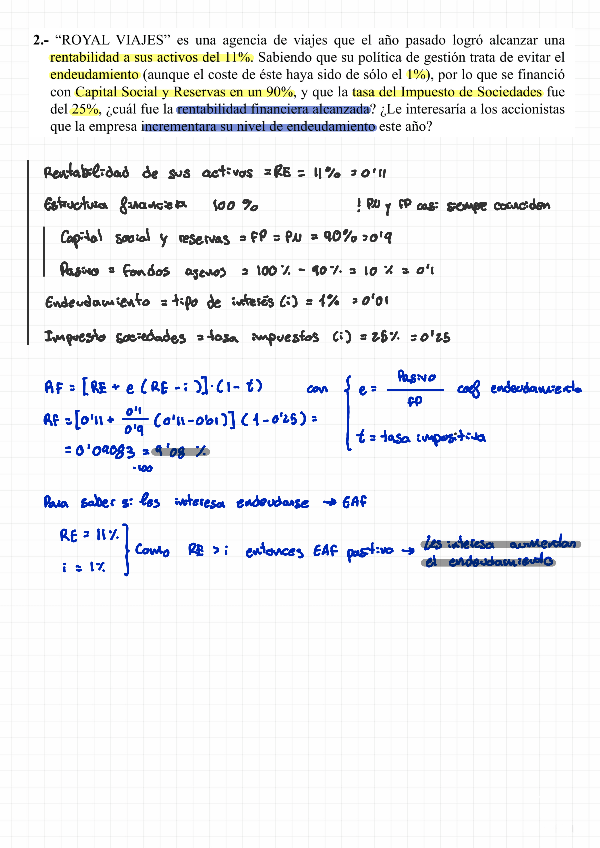 2.- “ROYAL VIAJES” es una agencia de viajes que el año pasado logró alcanzar una
rentabilidad a sus activos del 11%. Sabiendo que su política de gestión trata de evitar el
endeudamiento (aunque el coste de éste haya sido de sólo el 1%), por lo que se financió
con Capital Social y Reservas en un 90%, y que la tasa del Impuesto de Sociedades fue
del 25%, ¿cuál fue la rentabilidad financiera alcanzada? ¿Le interesaría a los accionistas
que la empresa incrementara su nivel de endeudamiento este año?
Rentabilidad de sus activos = RE = 11% = 0'11
Estructura financiera 100 % ! PN y FP casi siempre coinciden
Capital social y reservas = FP = PN = 90% = 0'9
Pasivo = Fondos agenos = 100% - 90% = 10% = 0'1
Endeudamiento = tipo de interés (i) = 1% = 0'01
Impuesto sociedades = tasa impuestos (i) = 25% = 0'25
RF = [RE + e (RE - i)]·(1 - t) con e = Pasivo / FP coef endeudamiento
RF = [0'11 + 0'1 / 0'9 (0'11 - 0'01)] (1 - 0'25) =
t = tasa impositiva
= 0'09083 = 9'08 %
·100
Para saber si les interesa endeudarse → EAF
RE = 11%
i = 1%
Como RE > i entonces EAF positivo → les interesa aumentar
el endeudamiento